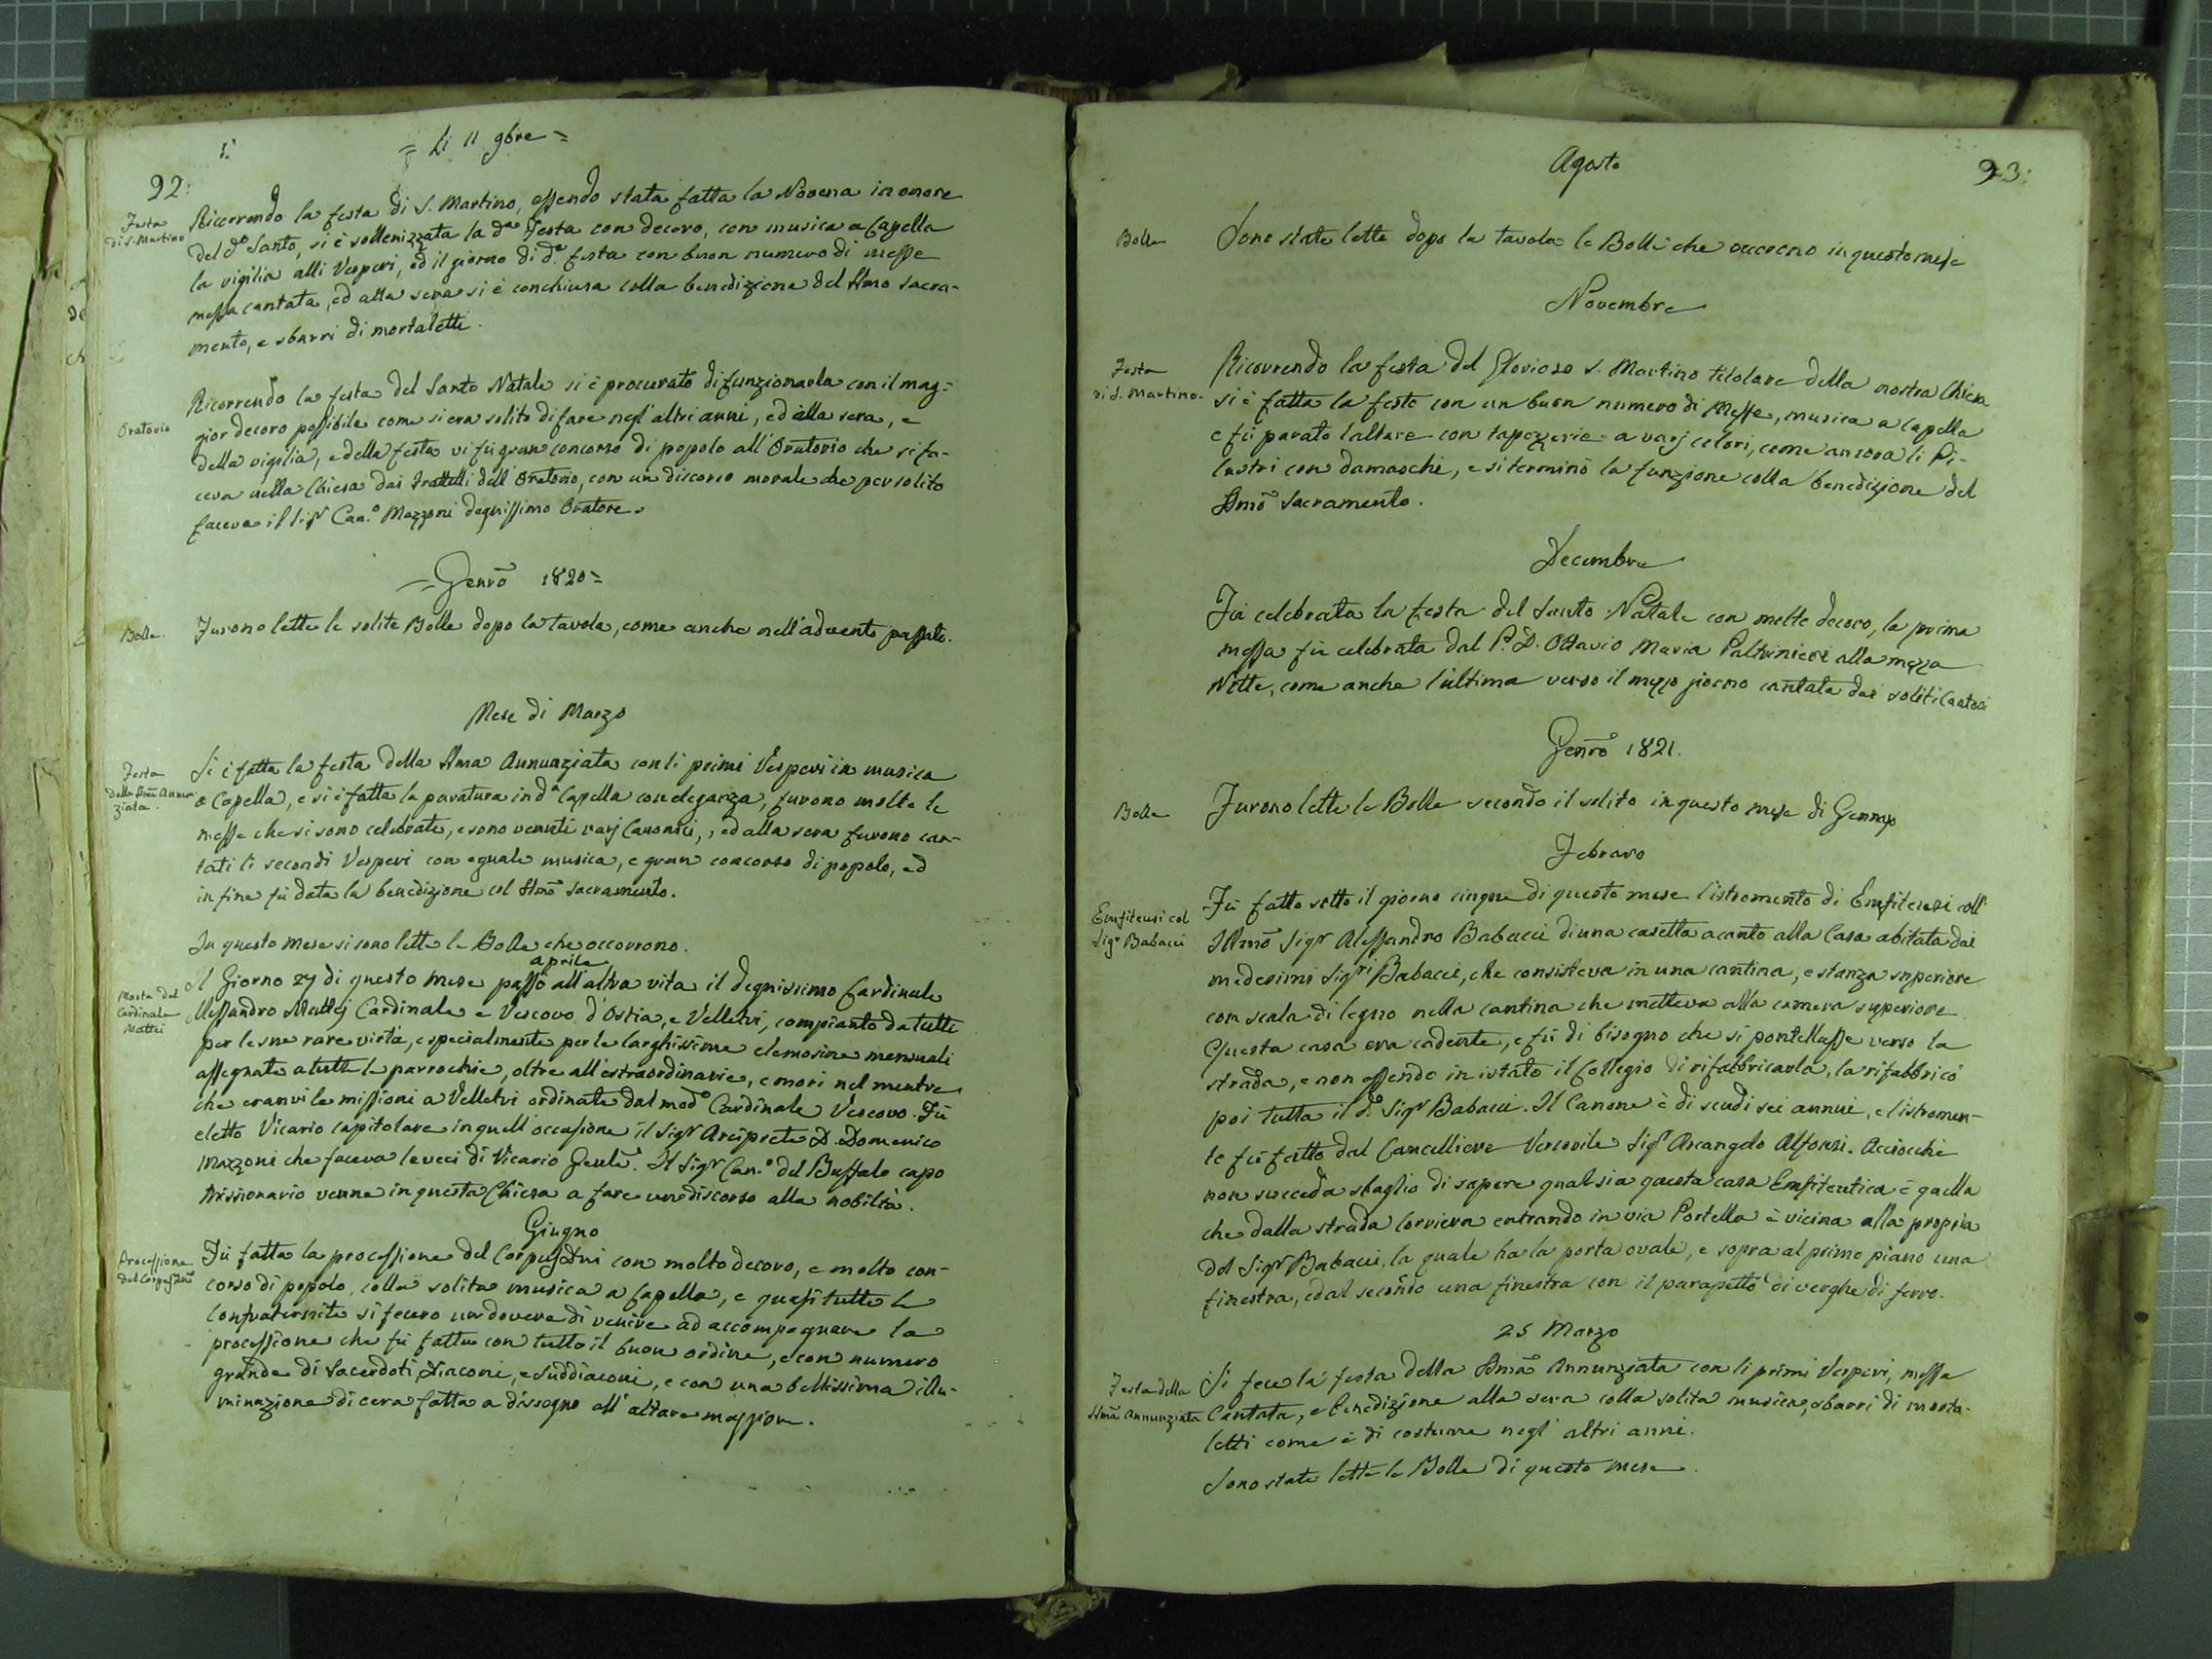 = Li 11 9bre =
92:
Festa
di S. Martino
Ricorrendo la festa di S. Martino, essendo stata fatta la Novena in onore
del do Santo, si è sollenizzata la da Festa con decoro, con musica a Capella
la vigilia alli Vesperi, ed il giorno di da festa con buon numero di messe
messa cantata, ed alla sera si è conchiusa colla benedizione del SSmo Sacra-
mento, e sbarri di mortaletti.
Oratorio
Ricorrendo la festa del Santo Natale si è procurato di funzionarla con il mag-
gior decoro possibile come si era solito di fare negl'altri anni, ed alla sera, e
della vigilia, e della festa vi fù gran concorso di popolo all'Oratorio che si fa-
ceva nella Chiesa dai Frattelli dell'Oratorio, con un discorso morale che per solito
faceva il Sigr Can.o Mazzoni degnissimo Oratore.
= Genro 1820 =
Bolle.
Furono lette le solite Bolle dopo la tavola, come anche nell'advento passato.
Mese di Marzo
Festa
della SSma Annun
ziata.
Si è fatta la festa della SSma Annunziata con li primi Vesperi in musica
a Capella, e si è fatta la paratura in da Capella con eleganza, furono molte le
messe che si sono celebrate, e sono venuti varj Canonici, ed alla sera furono can-
tati li secondi Vesperi con eguale musica, e gran concorso di popolo, ed
in fine fù data la benedizione col SSmo Sacramento.
In questo mese si sono lette le Bolle che occorrono.
aprile
Morte del
Cardinale
Mattei
Il Giorno 27 di questo mese passò all'altra vita il degnissimo Cardinale
Alessandro Mattej Cardinale e Vescovo d'Ostia, e Velletri, compianto da tutti
per le sue rare virtà, e specialmente per le larghissime elemosine mensuali
assegnate a tutte le parrochie, oltre all'estraordinarie, e morì nel mentre
che eranvi le missioni a Velletri ordinate dal medo Cardinale Vescovo. Fù
eletto Vicario Capitolare in quell'occasione il Sigr Arciprete D. Domenico
Mazzoni che faceva le veci di Vicario Genle. Il Sigr Can.o del Buffalo capo
Missionario venne in questa Chiesa a fare un discorso alla nobiltà.
Giugno
Processione
del Corpus Dni
Fù fatta la processione del Corpus Dni con molto decoro, e molto con-
corso di popolo, colla solita musica a Capella, e quasi tutte le
Confraternite si fecero un dovere di venire ad accompagnare la
processione che fù fatta con tutto il buon ordine, e con numero
grande di Sacerdoti, Diaconi, e Suddiaconi, e con una bellissima illu-
minazione di cera fatta a dissegno all'altare maggiore.
Agosto
93:
Bolle
Sono state lette dopo la tavola le Bolle che occorono in questo mese
Novembre
Festa
di S. Martino.
Ricorrendo la festa del Glorioso S. Martino titolare della nostra Chiesa
si è fatta la festa con un buon numero di Messe, musica a Capella
e fù parato l'altare con tapezzerie a varj colori, come ancora li Pi-
lastri con damaschi, e si terminò la funzione colla benedizione del
SSmo Sacramento.
Decembre
Fù celebrata la festa del Santo Natale con molto decoro, la prima
messa fù celebrata dal P. D. Ottavio Maria Paltrinieri alla mezza
Notte, come anche l'ultima verso il mezzo giorno cantata dai soliti Cantori
Genro 1821.
Bolle
Furono lette le Bolle secondo il solito in questo mese di Gennajo
Febraro
Emfiteusi col
Sigr Babacci
Fù fatto sotto il giorno cinque di questo mese l'istromento di Emfiteusi coll'
Illmo Sigr Alessandro Babacci di una casetta acanto alla Casa abitata dai
medesimi Sigri Babacci, che consisteva in una cantina, e stanza superiore
con scala di legno nella cantina che metteva alla camera superiore.
Questa casa era cadente, e fù di bisogno che si pontellasse verso la
strada, e non essendo in istato il Collegio di rifabbricarla, la rifabbricò
poi tutta il do Sigr Babacci. Il Canone è di scudi sei annui, e l'istromen-
to fù fatto dal Cancelliere Vescovile Sigr Arcangelo Alfonsi. Acciocchè
non succeda sbaglio di sapere qual sia questa casa Emfiteutica è quella
che dalla strada Corriera entrando in via Portella è vicina alla propria
del Sigr Babacci, la quale ha la porta ovale, e sopra al primo piano una
finestra, ed al secondo una finestra con il parapetto di verghe di ferro.
25 Marzo
Festa della
SSma Annunziata
Si fece la festa della SSma Annunziata con li primi Vesperi, messa
Cantata, e benedizione alla sera colla solita musica, sbarri di morta-
letti come è di costume negl'altri anni.
Sono state lette le Bolle di questo mese.